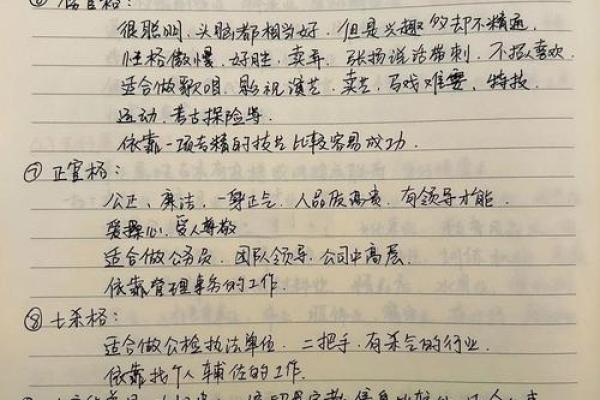 ⑥ 伤官格：
很聪明，头脑都相当好，但是兴趣多却不精通，
性格傲慢，好胜，卖弄，张扬说话带刺，不招人喜欢
适合做歌唱，影视演艺，卖艺，马戏杂耍，特技，
运动，考古探险等
依靠一项专精的技艺比较容易成功．
⑦ 正官格：
公正，廉洁，一身正气，人品质高贵，有领导才能，
爱操心，受人尊敬
适合做公务员，团队领导，公司中高层．
依靠管理事务的工作．
⑧ 七杀格：
适合做公检执法单位，二把手，有杀气的行业．
依靠找个人辅佐的工作．